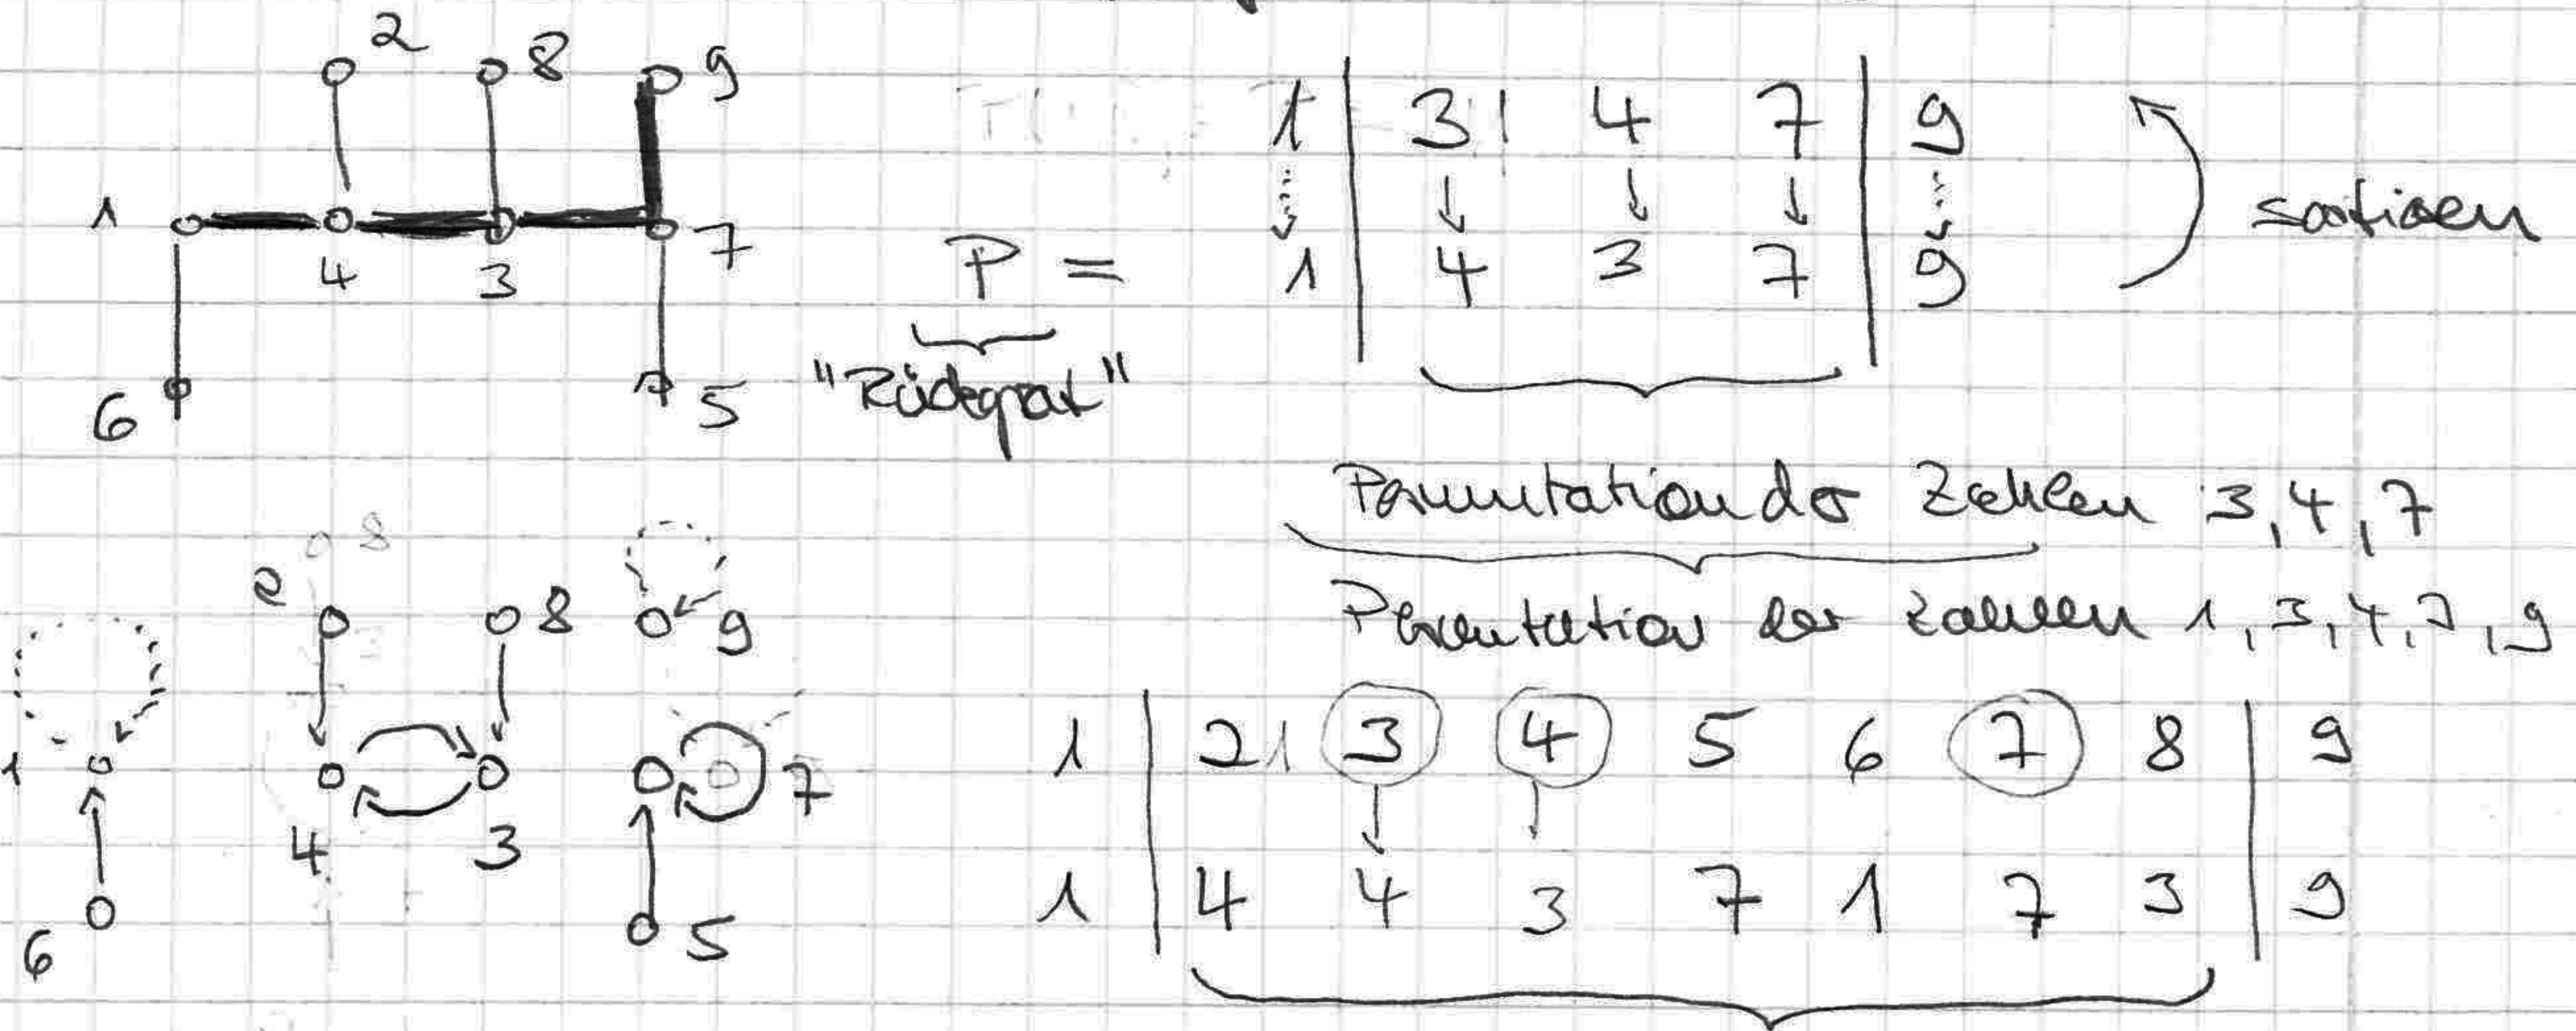 2 8 9
1 4 3 7
6 5
1 | 3 4 7 | 9
P = 1 | 4 3 7 | 9
sortieren
"Rückgrat"
Permutation der Zahlen 3, 4, 7
Permutation der Zahlen 1, 3, 4, 7, 9
2 8 9
1 4 3 7
6 5
1 | 2 3 4 5 6 7 8 | 9
1 | 4 4 3 7 1 7 3 | 9